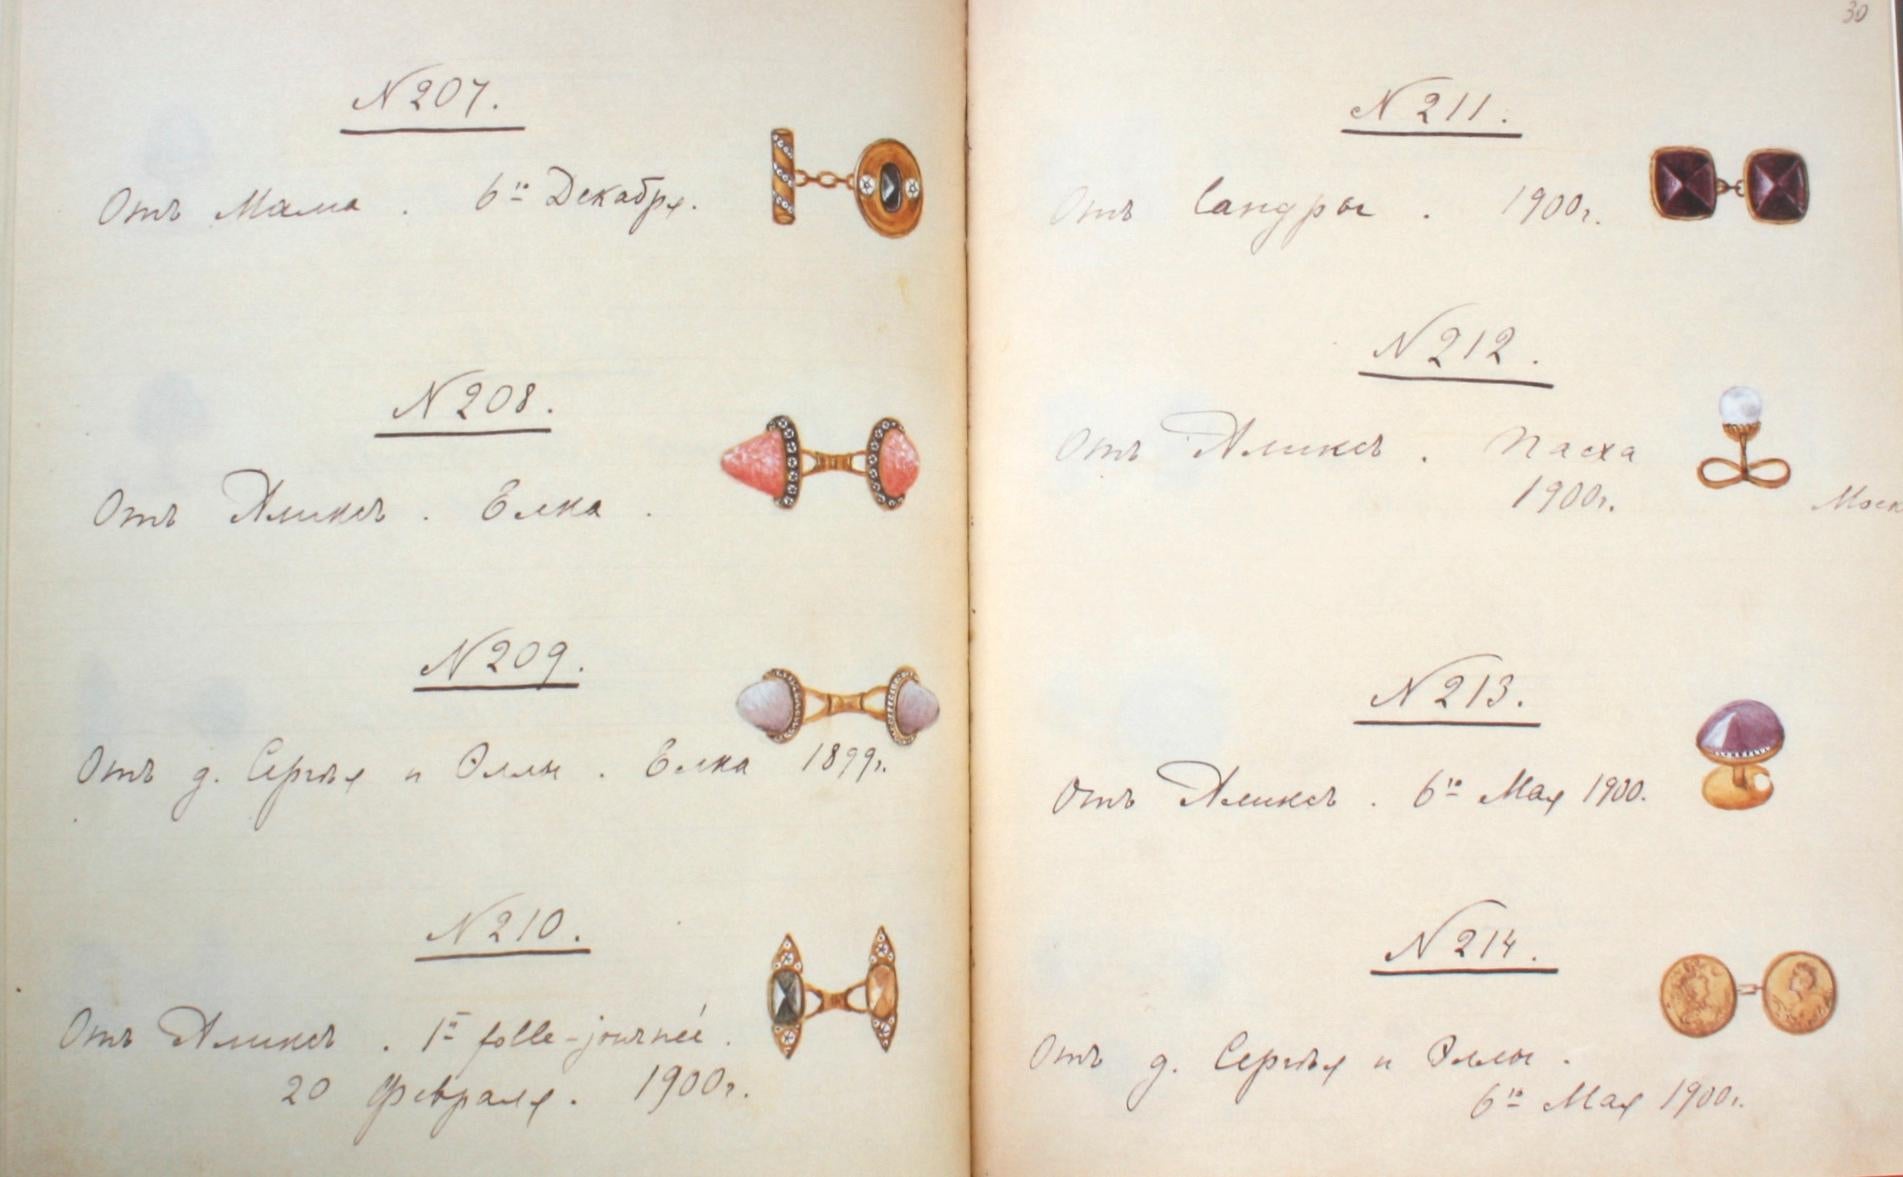 N 207.
Отъ Мама. 6го Декабря.
N 208.
Отъ Аликсъ. Елка.
N 209.
Отъ д. Сергѣя и Эллы. Елка 1899г.
N 210.
Отъ Аликсъ. 1я folle-journée.
20 Февраля. 1900г.
30
N 211.
Отъ Сандры. 1900г.
N 212.
Отъ Аликсъ. Пасха
1900г. Моск
N 213.
Отъ Аликсъ. 6го Мая 1900.
N 214.
Отъ д. Сергѣя и Эллы.
6го Мая 1900г.